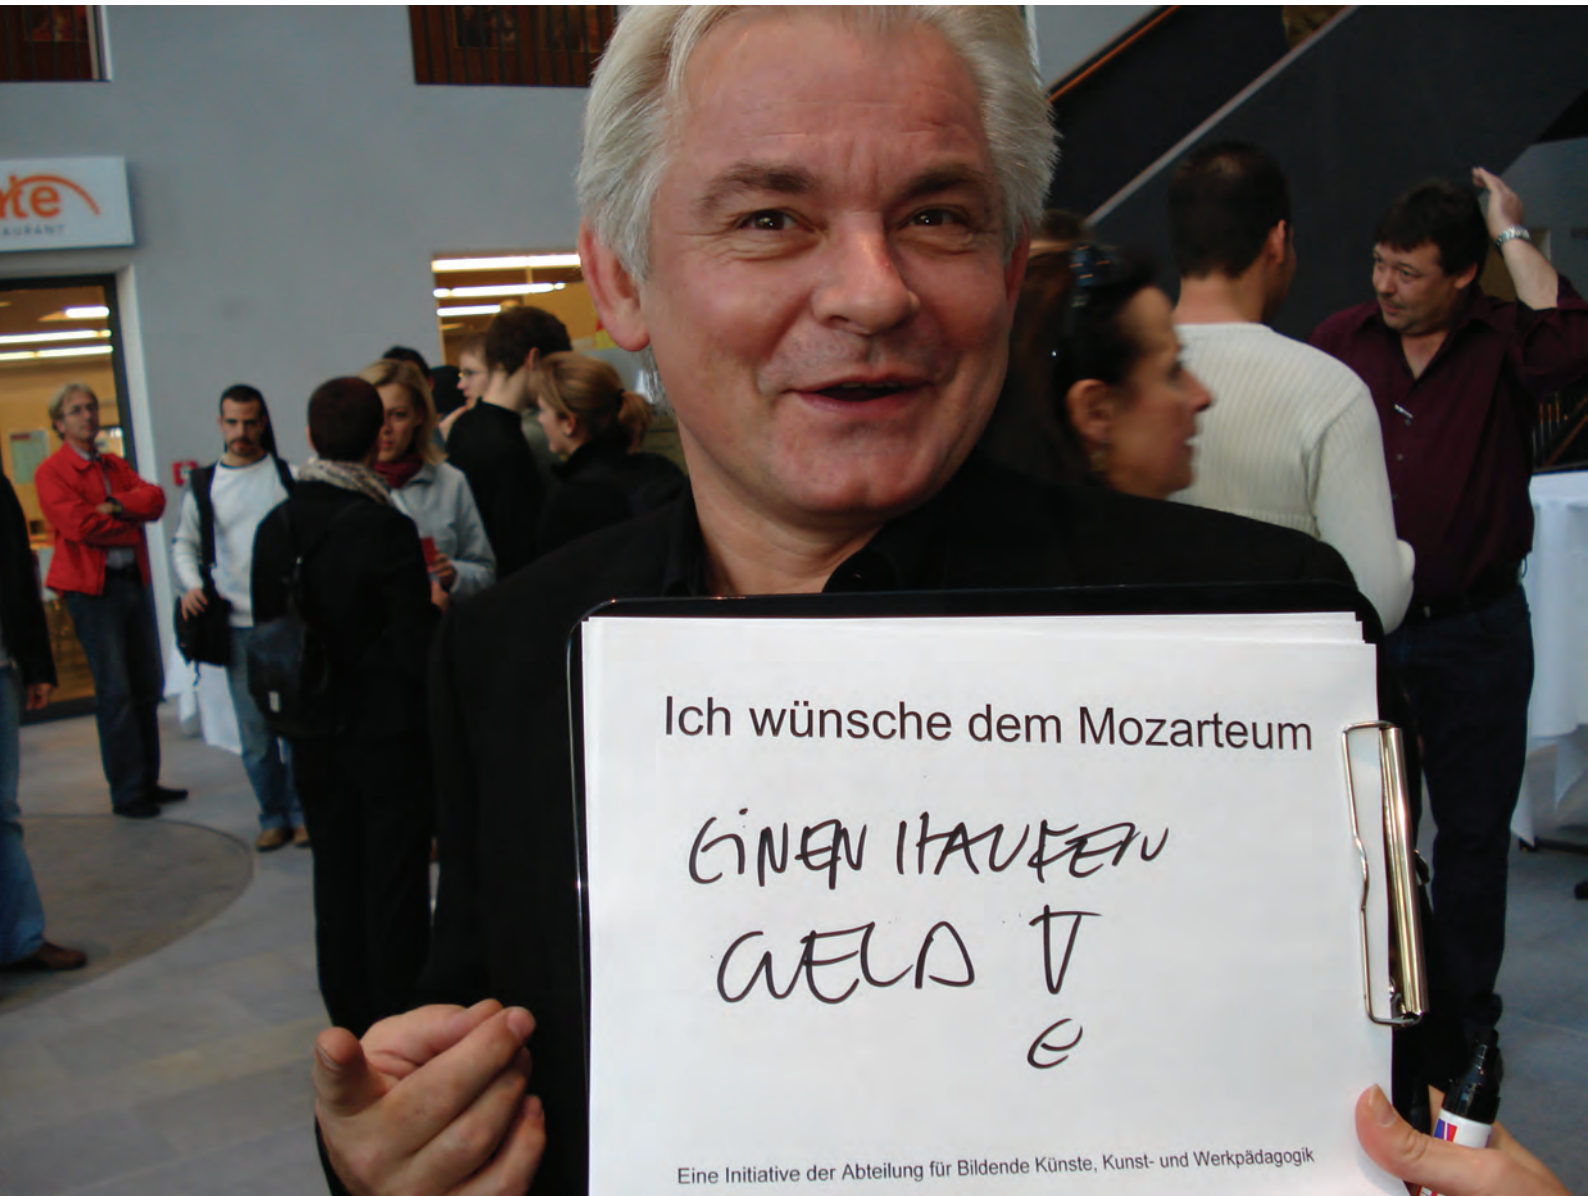 Ich wünsche dem Mozarteum
EINEN HAUFEN
GELD !
Eine Initiative der Abteilung für Bildende Künste, Kunst- und Werkpädagogik